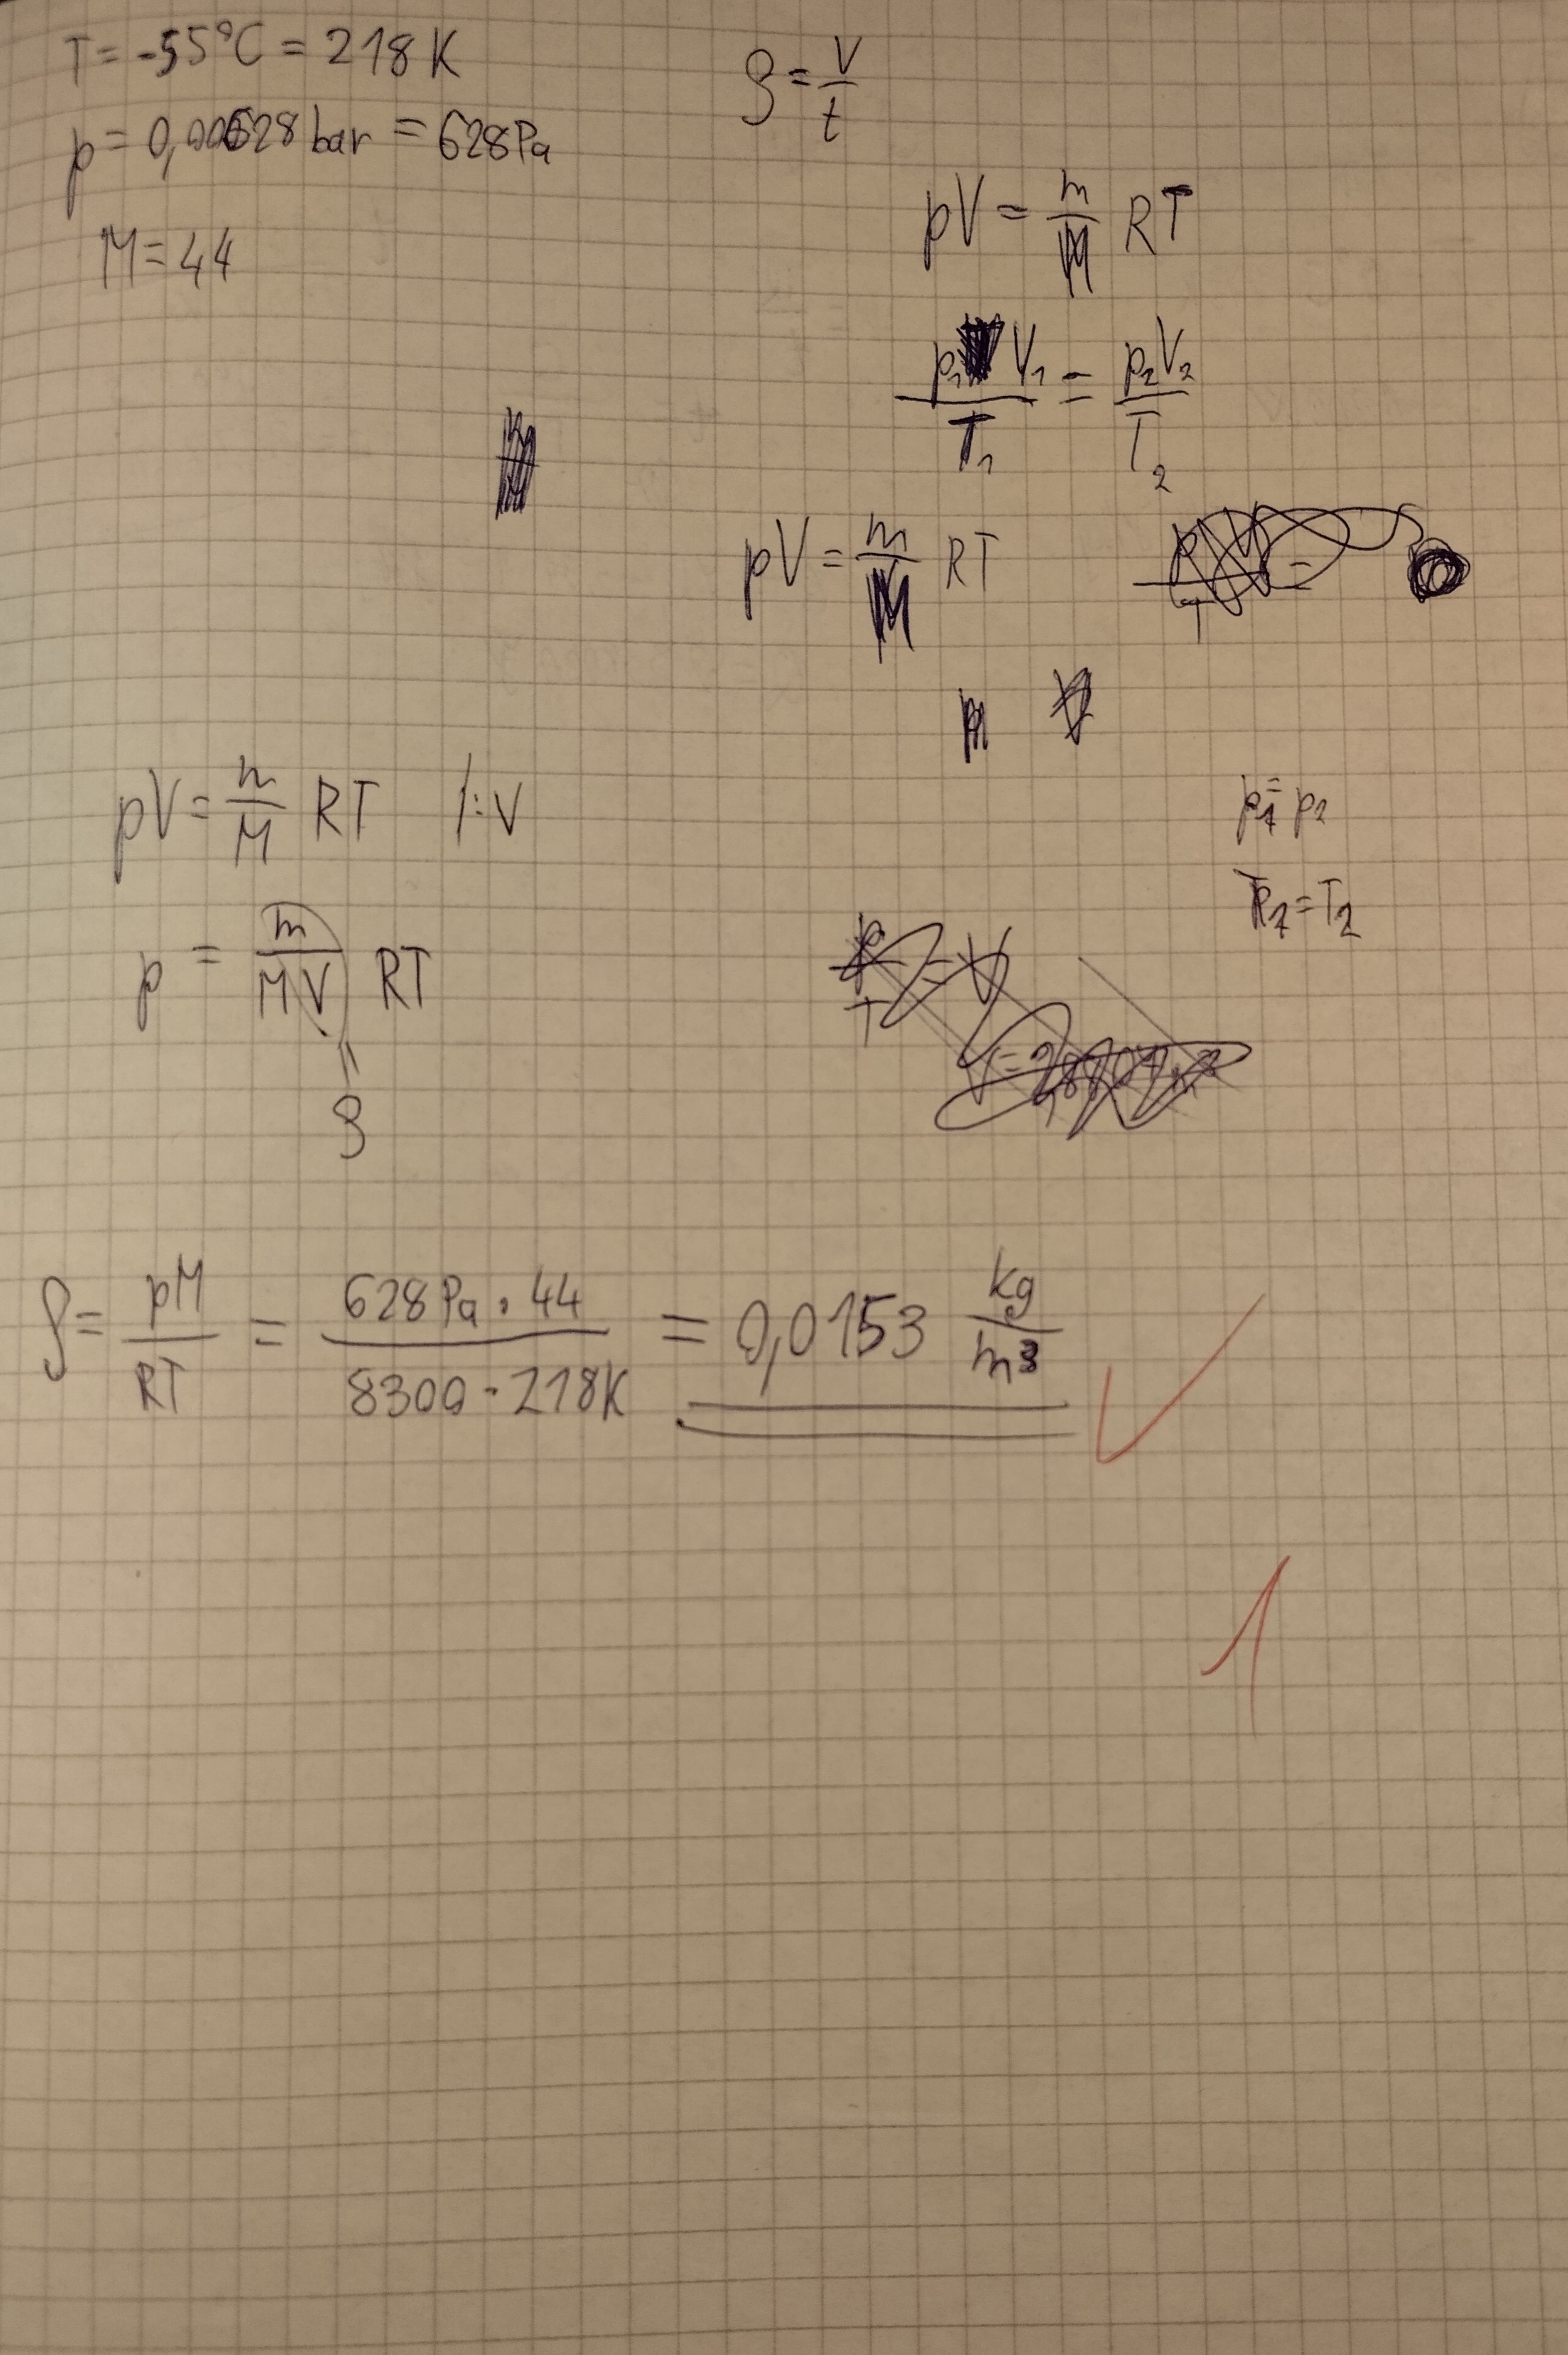 T = -55°C = 218 K
p = 0,00628 bar = 628 Pa
M = 44
ρ = V/t
pV = m/M RT
p₁ V₁/T₁ = p₂V₂/T₂
pV = m/M RT
pV = m/M RT /:V
p₁ = p₂
T₁ = T₂
p = m/MV RT
ρ
ρ = pM/RT = 628 Pa · 44/8300 · 218K = 0,0153 kg/m³ ✓
1